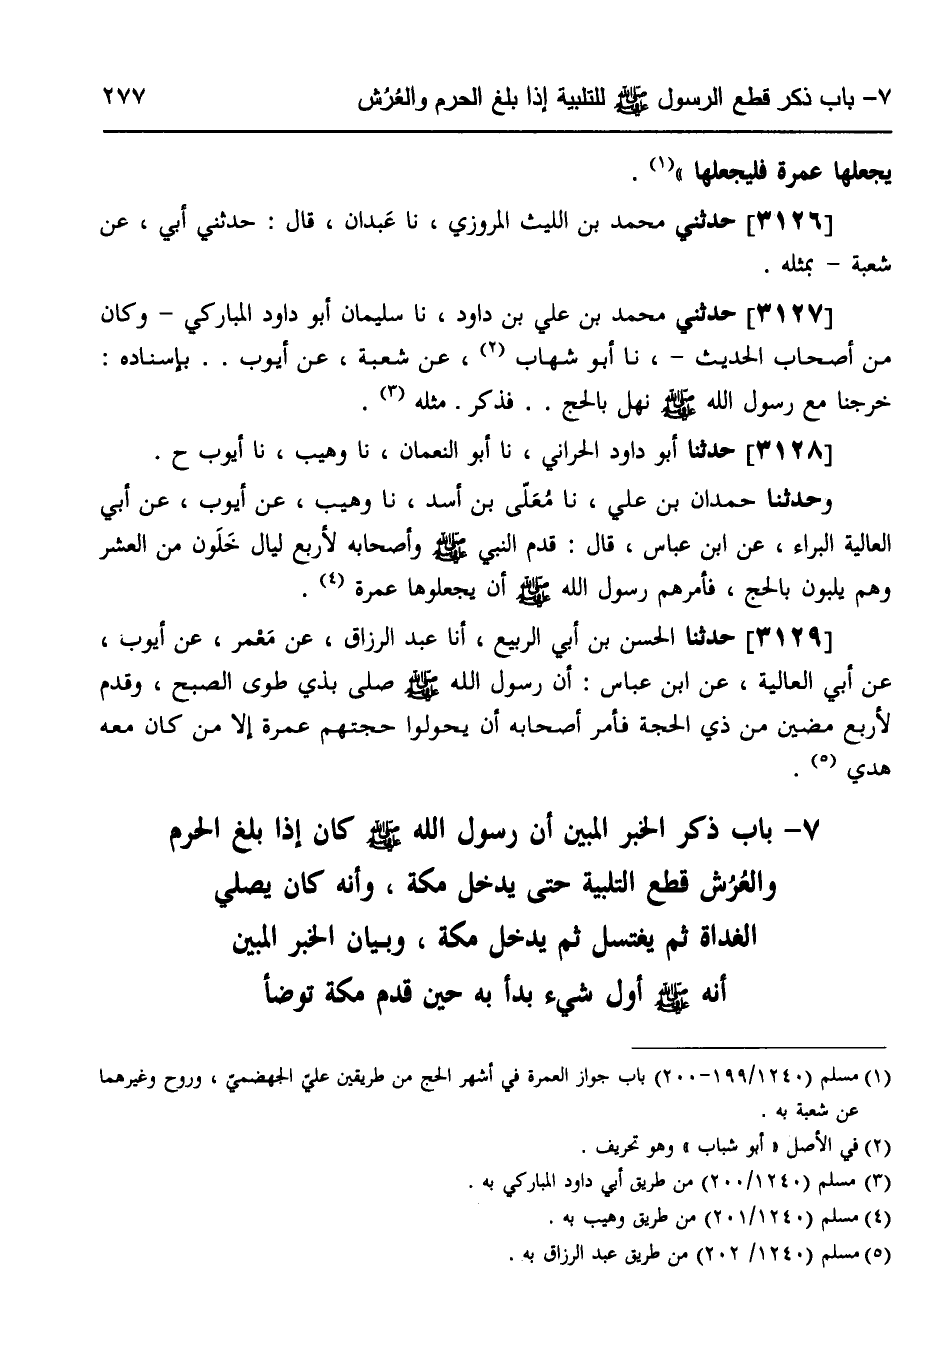 ٧- باب ذكر قطع الرسول ﷺ للتلبية إذا بلغ الحرم والعُرُش ٢٧٧
يجعلها عمرة فليجعلها »(١) .
[٣١٢٦] حدثني محمد بن الليث المروزي ، نا عَبدان ، قال : حدثني أبي ، عن
شعبة – بمثله .
[٣١٢٧] حدثني محمد بن علي بن داود ، نا سليمان أبو داود المباركي – وكان
من أصحاب الحديث – ، نا أبو شهاب (٢) ، عن شعبة ، عن أيوب . . بإسناده :
خرجنا مع رسول الله ﷺ نهل بالحج . . فذكر . مثله (٣) .
[٣١٢٨] حدثنا أبو داود الحراني ، نا أبو النعمان ، نا وهيب ، نا أيوب ح .
وحدثنا حمدان بن علي ، نا مُعَلّى بن أسد ، نا وهيب ، عن أيوب ، عن أبي
العالية البراء ، عن ابن عباس ، قال : قدم النبي ﷺ وأصحابه لأربع ليال خَلَون من العشر
وهم يلبون بالحج ، فأمرهم رسول الله ﷺ أن يجعلوها عمرة (٤) .
[٣١٢٩] حدثنا الحسن بن أبي الربيع ، أنا عبد الرزاق ، عن مَعْمر ، عن أيوب ،
عن أبي العالية ، عن ابن عباس : أن رسول الله ﷺ صلى بذي طوى الصبح ، وقدم
لأربع مضين من ذي الحجة فأمر أصحابه أن يحولوا حجتهم عمرة إلا من كان معه
هدي (٥) .
٧- باب ذكر الخبر المبين أن رسول الله ﷺ كان إذا بلغ الحرم
والعُرُش قطع التلبية حتى يدخل مكة ، وأنه كان يصلي
الغداة ثم يغتسل ثم يدخل مكة ، وبيان الخبر المبين
أنه ﷺ أول شيء بدأ به حين قدم مكة توضأ
(١) مسلم (١٢٤٠/١٩٩-٢٠٠) باب جواز العمرة في أشهر الحج من طريقين عليّ الجهضميّ ، وروح وغيرهما
عن شعبة به .
(٢) في الأصل « أبو شباب » وهو تحريف .
(٣) مسلم (١٢٤٠/٢٠٠) من طريق أبي داود المباركي به .
(٤) مسلم (١٢٤٠/٢٠١) من طريق وهيب به .
(٥) مسلم (١٢٤٠/ ٢٠٢) من طريق عبد الرزاق به .